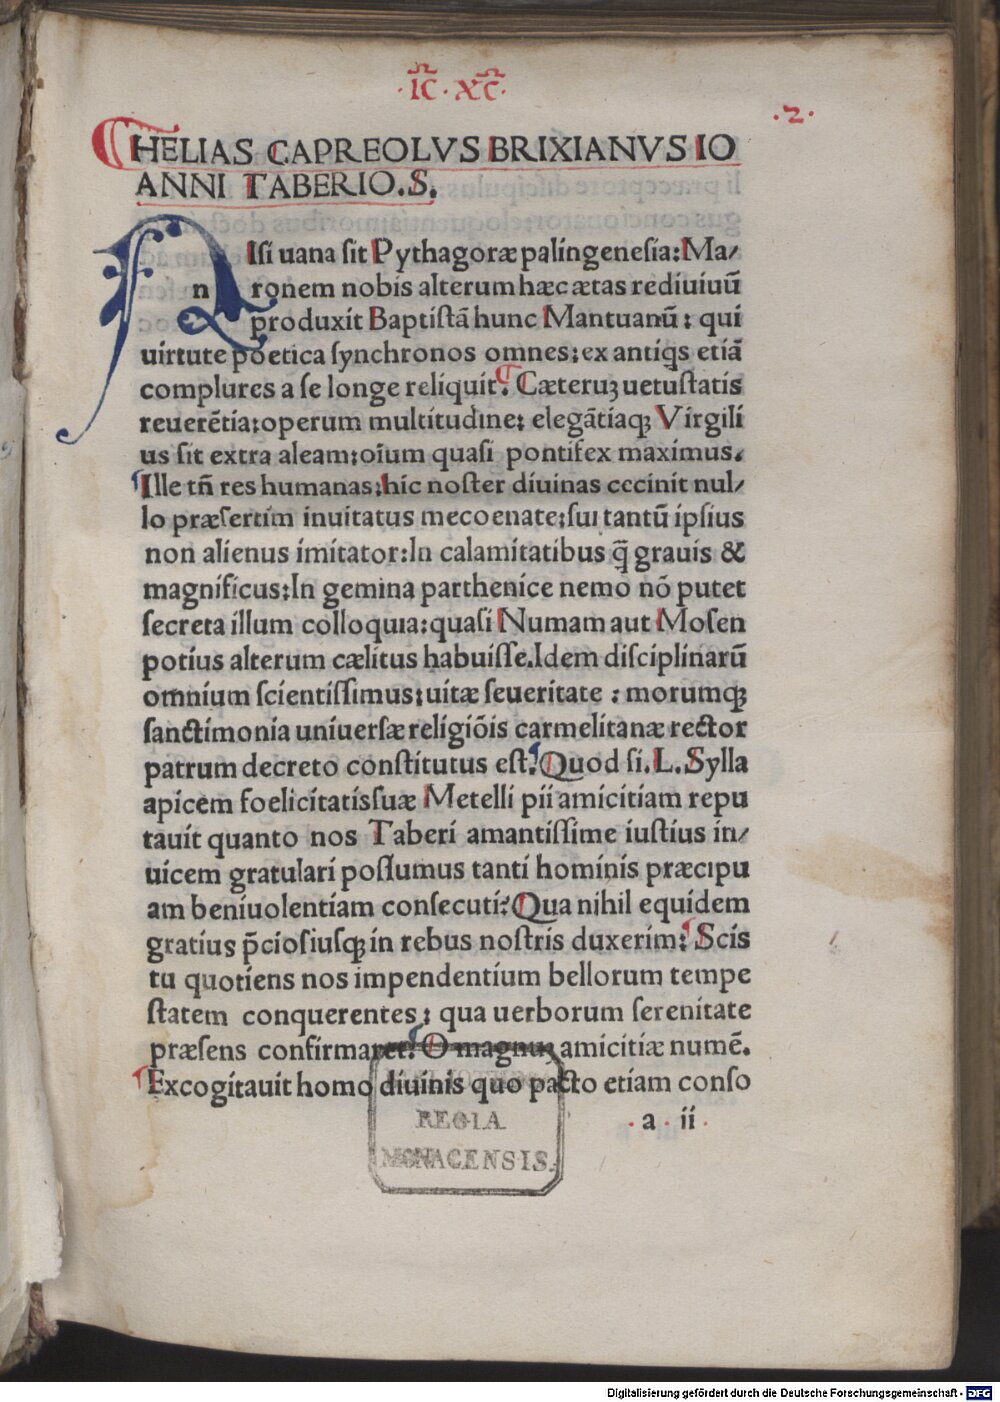 ·IC· XC·
·2·
HELIAS CAPREOLVS BRIXIANVS IO
ANNI TABERIO.S.
NIsi uana sit Pythagoræ palingenesia: Ma/
n ronem nobis alterum hæc ætas rediuiuū
produxit Baptistā hunc Mantuanū: qui
uirtute poetica synchronos omnes: ex antiq̄s etiā
complures a se longe reliquit. Cæteruꝫ uetustatis
reuerētia: operum multitudine: elegātiaqꝫ Virgili
us sit extra aleam: oīum quasi pontifex maximus.
Ille tn̄ res humanas: hic noster diuinas cecinit nul/
lo præsertim inuitatus mecoenate: sui tantū ipsius
non alienus imitator: In calamitatibus q̄ grauis &
magnificus: In gemina parthenice nemo nō putet
secreta illum colloquia: quasi Numam aut Mosen
potius alterum cælitus habuisse. Idem disciplinarū
omnium scientissimus: uitæ seueritate: morumqꝫ
sanctimonia uniuersæ religiōis carmelitanæ rector
patrum decreto constitutus est. Quod si. L. Sylla
apicem foelicitatis suæ Metelli pii amicitiam repu
tauit quanto nos Taberi amantissime iustius in/
uicem gratulari possumus tanti hominis præcipu
am beniuolentiam consecuti? Qua nihil equidem
gratius p̄ciosiusqꝫ in rebus nostris duxerim: Scis
tu quotiens nos impendentium bellorum tempe
statem conquerentes: qua uerborum serenitate
præsens confirmaret. O magnuꝫ amicitiæ numē.
Excogitauit homo diuinis quo pacto etiam conso
· a · ii ·
REGIA
MONACENSIS.
Digitalisierung gefördert durch die Deutsche Forschungsgemeinschaft - DFG